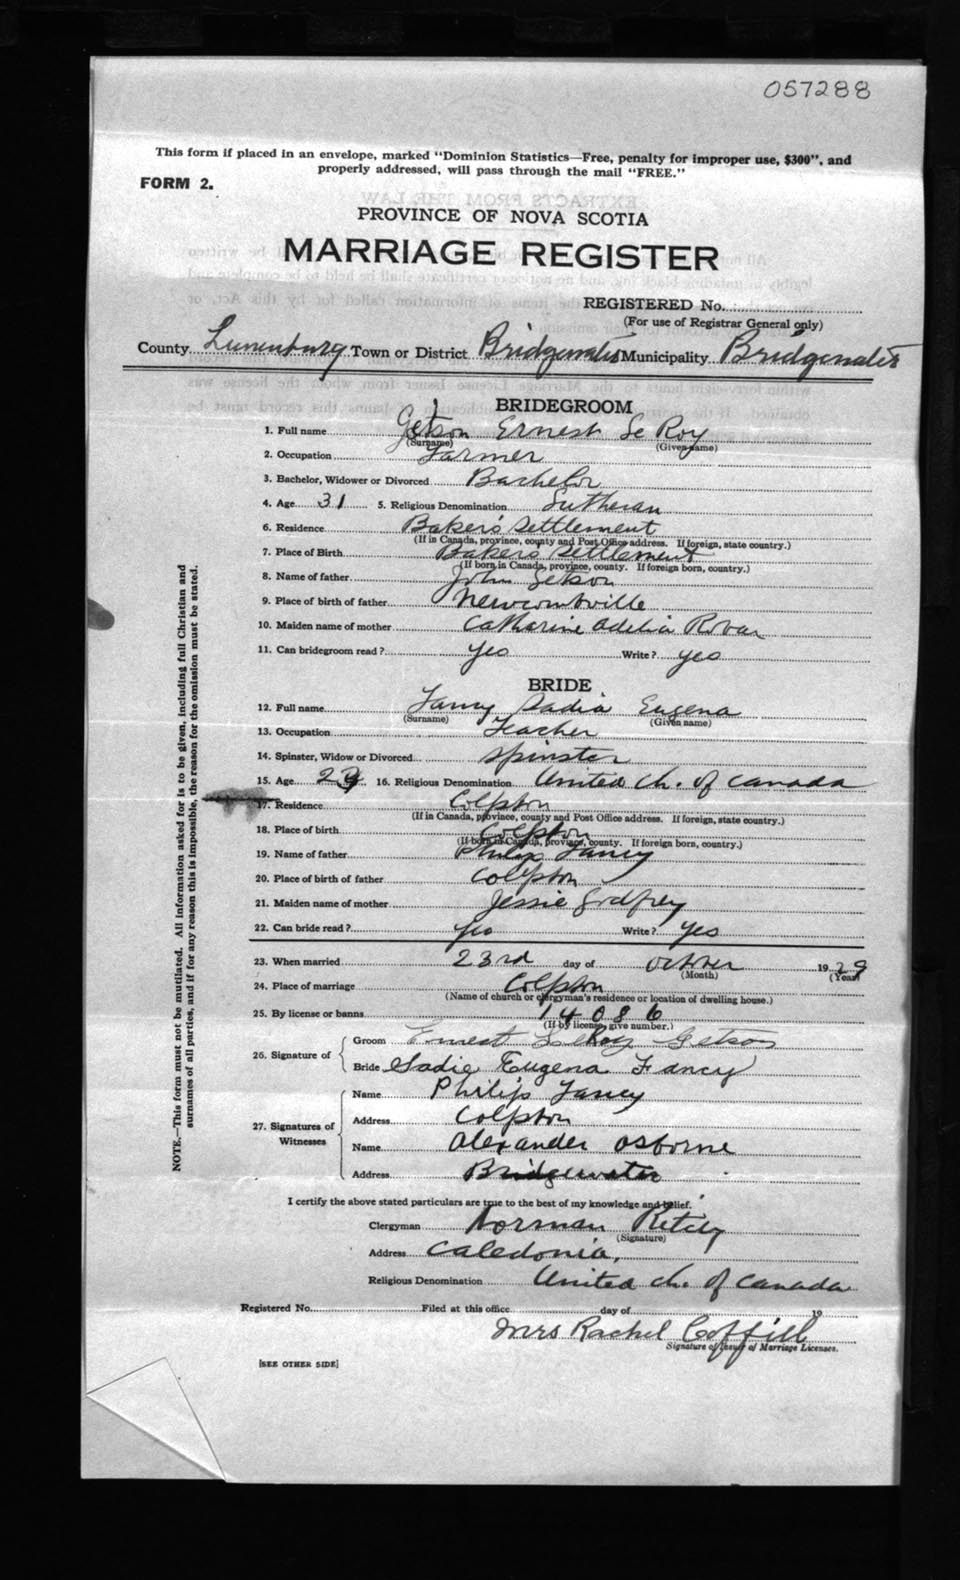 057288
This form if placed in an envelope, marked "Dominion Statistics—Free, penalty for improper use, $300", and
properly addressed, will pass through the mail "FREE."
FORM 2.
PROVINCE OF NOVA SCOTIA
MARRIAGE REGISTER
REGISTERED No.
(For use of Registrar General only)
County Lunenburg Town or District Bridgewater Municipality Bridgewater
BRIDEGROOM
1. Full name Getson Ernest Le Roy
(Surname) (Given name)
2. Occupation Farmer
3. Bachelor, Widower or Divorced Bachelor
4. Age 31 5. Religious Denomination Lutheran
6. Residence Baker's Settlement
(If in Canada, province, county and Post Office address. If foreign, state country.)
7. Place of Birth Baker's Settlement
(If born in Canada, province, county. If foreign born, country.)
8. Name of father John Getson
9. Place of birth of father Newcombville
10. Maiden name of mother Catharine Adelia Rovar
11. Can bridegroom read? yes Write? yes
BRIDE
12. Full name Fancy Sadia Eugena
(Surname) (Given name)
13. Occupation Teacher
14. Spinster, Widow or Divorced Spinster
15. Age 29 16. Religious Denomination United Ch. of Canada
17. Residence Colpton
(If in Canada, province, county and Post Office address. If foreign, state country.)
18. Place of birth Colpton
(If born in Canada, province, county. If foreign born, country.)
19. Name of father Philip Fancy
20. Place of birth of father Colpton
21. Maiden name of mother Jessie Godfrey
22. Can bride read? yes Write? yes
23. When married 23rd day of October 1929
(Month) (Year)
24. Place of marriage Colpton
(Name of church or clergyman's residence or location of dwelling house.)
25. By license or banns 14086
(If by license, give number.)
26. Signature of Groom Ernest LeRoy Getson
Bride Sadie Eugena Fancy
27. Signatures of Witnesses Name Philip Fancy
Address Colpton
Name Alexander Osborne
Address Bridgewater
I certify the above stated particulars are true to the best of my knowledge and belief.
Clergyman Norman
(Signature)
Address Caledonia,
Religious Denomination United Ch. of Canada
Registered No. Filed at this office day of 19
Mrs Rachel Coffill
Signature of Issuer of Marriage Licenses.
[SEE OTHER SIDE]
NOTE.—This form must not be mutilated. All information asked for is to be given, including full Christian and
surnames of all parties, and if for any reason this is impossible, the reason for the omission must be stated.